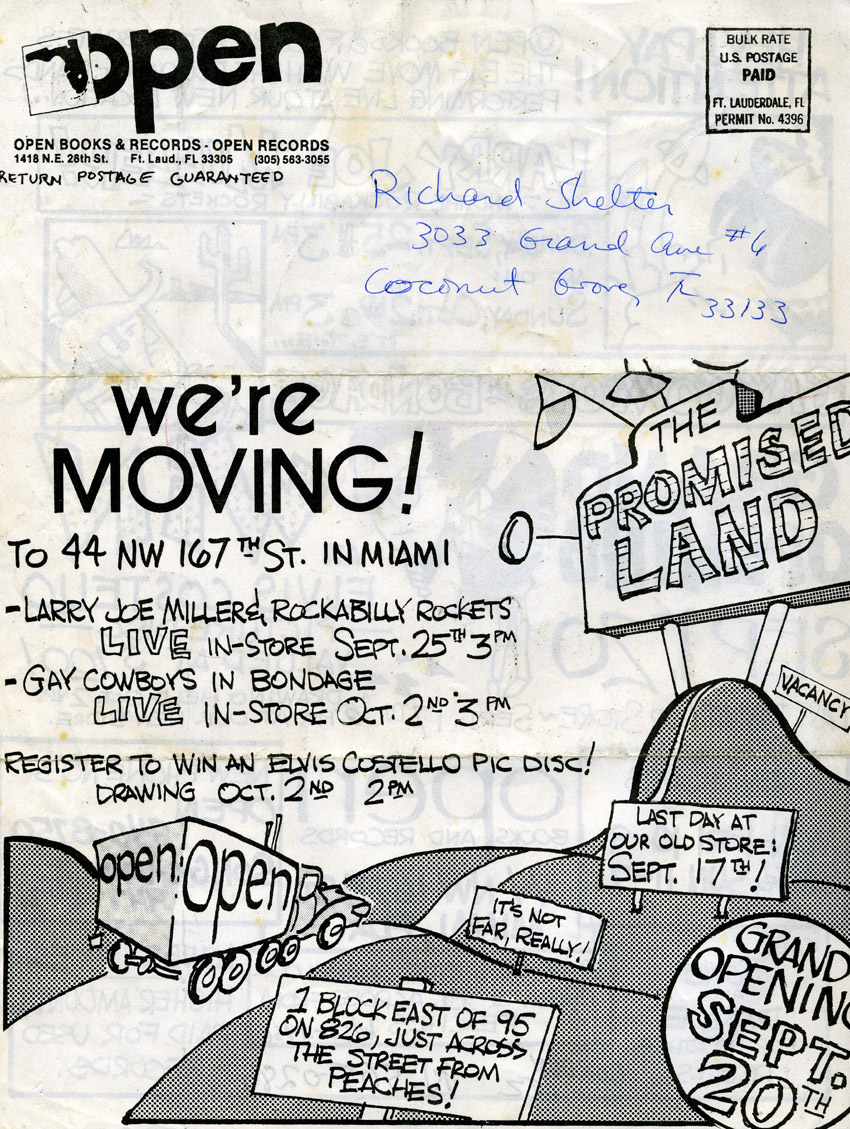 open
OPEN BOOKS & RECORDS - OPEN RECORDS
1418 N.E. 28th St. Ft. Laud., FL 33305 (305) 563-3055
RETURN POSTAGE GUARANTEED
BULK RATE
U.S. POSTAGE
PAID
FT. LAUDERDALE, FL
PERMIT No. 4396
Richard Shelter
3033 Grand Ave #6
Coconut Grove, FL
33133
we're
MOVING!
TO 44 NW 167TH ST. IN MIAMI
- LARRY JOE MILLER & ROCKABILLY ROCKETS
LIVE IN-STORE SEPT. 25TH 3PM
- GAY COWBOYS IN BONDAGE
LIVE IN-STORE OCT. 2ND 3PM
REGISTER TO WIN AN ELVIS COSTELLO PIC DISC!
DRAWING OCT. 2ND 2PM
THE
PROMISED
LAND
VACANCY
LAST DAY AT
OUR OLD STORE:
SEPT. 17TH!
open: Open
IT'S NOT
FAR, REALLY!
1 BLOCK EAST OF 95
ON 826, JUST ACROSS
THE STREET FROM
PEACHES!
GRAND
OPENING
SEPT.
20TH